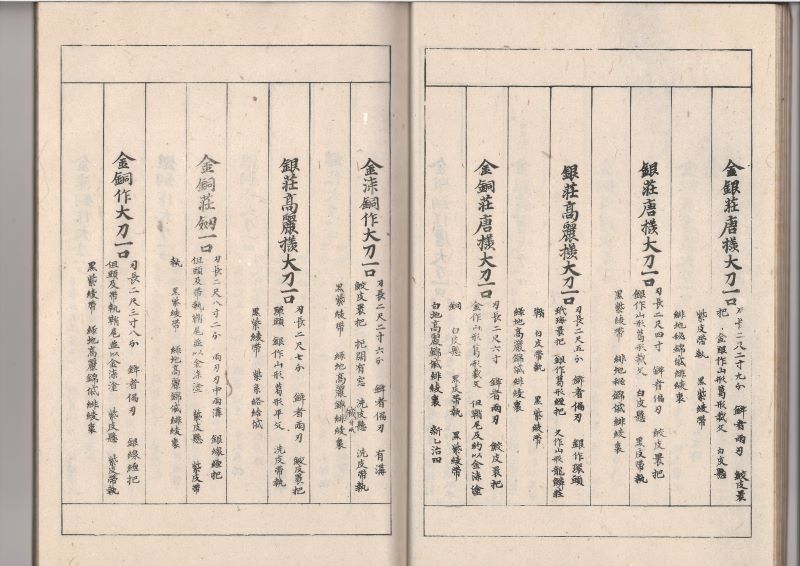 金銀莊唐樣大刀一口
刃長二尺二寸九分 鋒者兩刃 鮫皮裹
把 金銀作山形葛形裁文 白皮懸
紫皮帶執 黑紫綾帶
緋地錦袋緋綾裏
銀莊唐樣大刀一口
刃長二尺四寸 鋒者偏刃 鮫皮裹把
銀作山形葛形裁文 白皮懸 黑皮帶執
黑紫綾帶 緋地錦袋緋綾裏
銀莊高麗樣大刀一口
刃長二尺五分 鋒者偏刃 銀作環頭
玳瑁裹把 銀作葛形纒把 又作山形龍鱗莊
鞘 白皮帶執 黑紫綾帶
綠地高麗錦袋緋綾裏
金銅莊唐樣大刀一口
刃長二尺六寸 鋒者兩刃 鮫皮裹把
金作山形葛形裁文 但鞘尾及約以金渁塗
銅 白皮懸 黑皮帶執 黑紫綾帶
白地高麗錦袋緋綾裏
金渁銅作大刀一口
刃長二尺二寸六分 鋒者偏刃 有溝
鮫皮裹把 把䦨有 洗皮懸 洗皮帶執
黑紫綾帶 綠地高麗錦緋綾裏
銀莊高麗樣大刀一口
刃長二尺七分 鋒者兩刃 鮫皮裹把
環頭 銀作山形葛形平文 洗皮帶執
黑紫綾帶 紫袋
金銅莊釼一口
刃長二尺八寸二分 兩刃刃中兩溝 銀線纒把
但頭及帶執鞘尾並以金渁塗 紫皮懸 紫皮帶
執 黑紫綾帶 綠地高麗錦袋緋綾裏
金銅作大刀一口
刃長二尺三寸八分 鋒者偏刃 銀線纒把
但頭及帶執鞘尾並以金渁塗 紫皮懸 紫皮帶執
黑紫綾帶 綠地高麗錦袋緋綾裏